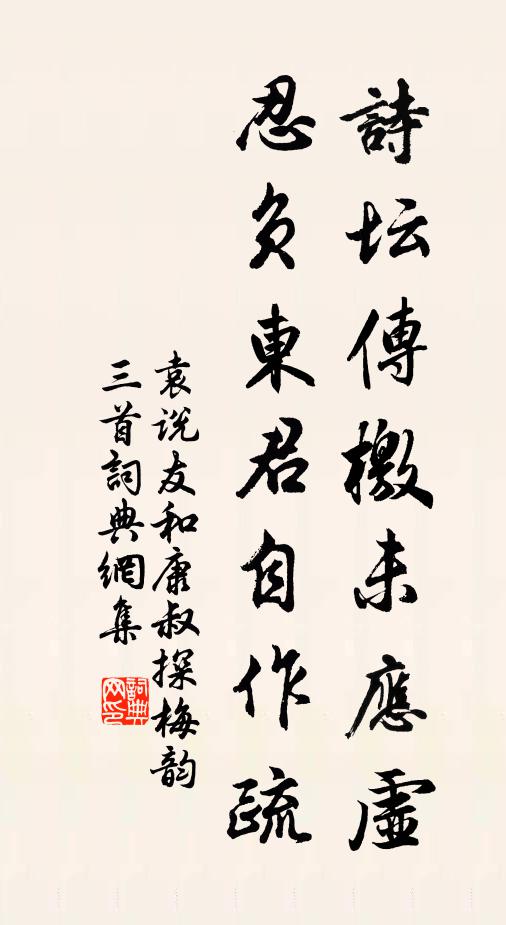 詩坛傳檄未應虛
忍負東君自作疏
袁说友和康叔探梅韵
三首詞典網集
詞典网印